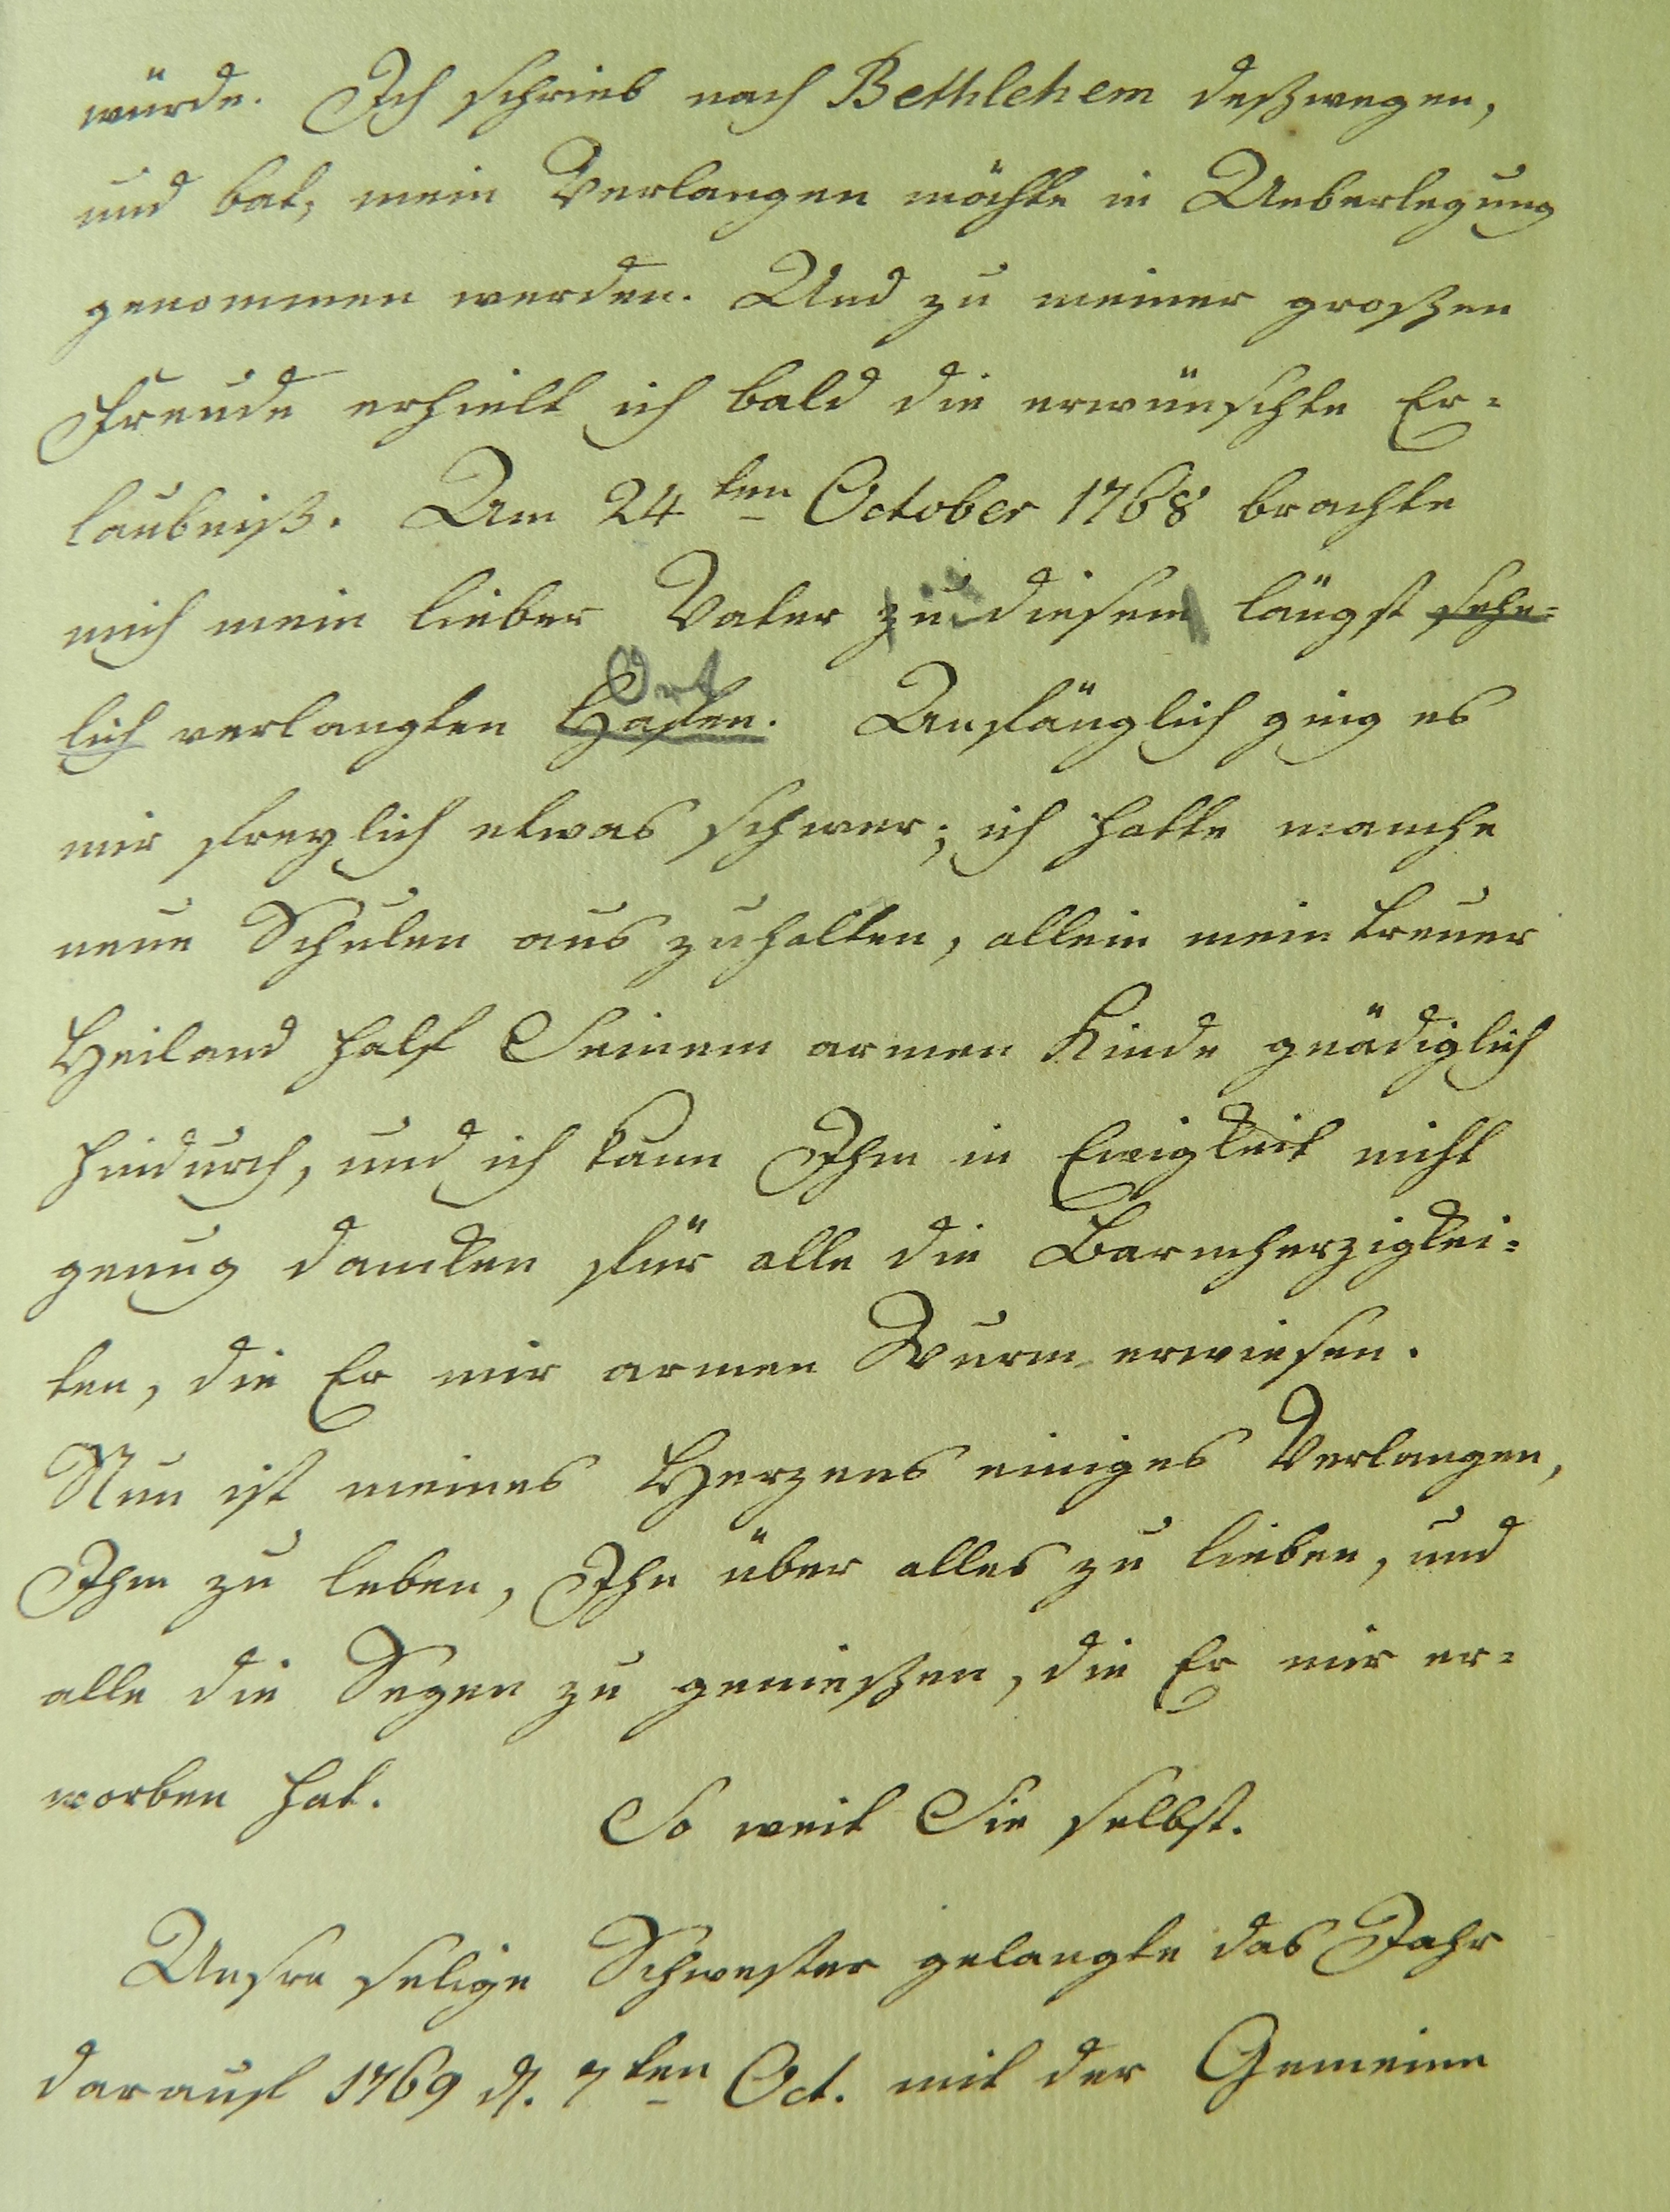 würde. Ich schrieb nach Bethlehem deßwegen,
und bat, mein Verlangen möchte in Ueberlegung
genommen werden. Und zu meiner großen
Freude erhielt ich bald die erwünschte Er-
laubniß. Am 24ten October 1768 brachte
mich mein lieber Vater zu diesem längst sehn-
Ort
lich verlangten Hafen. Anfänglich ging es
mir freylich etwas schwer; ich hatte manche
neue Schulen aus zuhalten, allein mein treuer
Heiland half Seinem armen Kinde gnädiglich
hindurch, und ich kann Ihm in Ewigkeit nicht
genug dancken für alle die Barmherzigkei-
ten, die Er mir armen Wurm erwiesen.
Nun ist meines Herzens einiges Verlangen,
Ihm zu leben, Ihn über alles zu lieben, und
alle die Segen zu genießen, die Er mir er-
worben hat.
So weit Sie selbst.
Unsre selige Schwester gelangte das Jahr
darauf 1769 d. 7ten Oct. mit der Gemeine